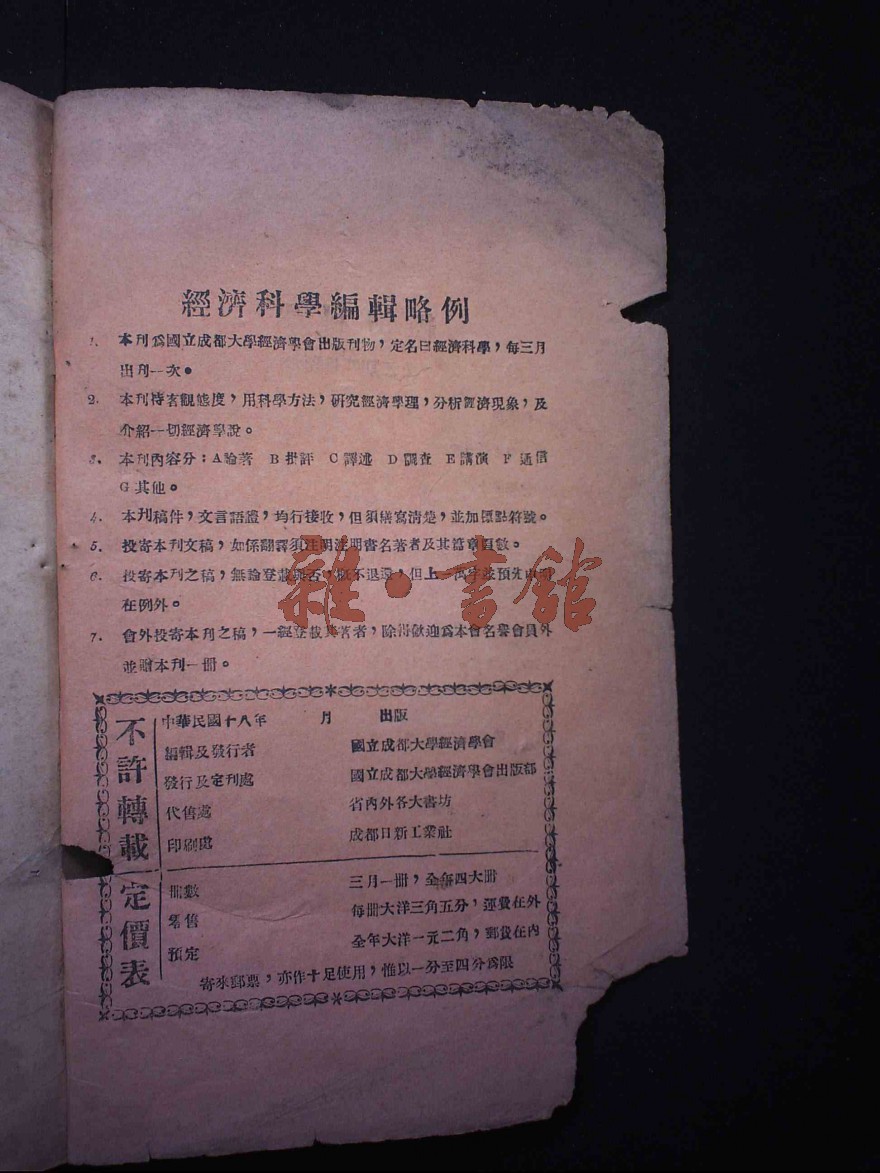 經濟科學編輯略例
1. 本刊爲國立成都大學經濟學會出版刊物，定名曰經濟科學，每三月
出刊一次。
2. 本刊持客觀態度，用科學方法，研究經濟學理，分析經濟現象，及
介紹一切經濟學說。
3. 本刊內容分：A論著 B批評 C譯述 D調查 E講演 F通信
G其他。
4. 本刊稿件，文言語體，均行接收，但須繕寫清楚，並加標點符號。
5. 投寄本刊文稿，如係翻譯須注明注明書名著者及其篇章頁數。
6. 投寄本刊之稿，無論登載與否，概不退還，但上一萬字並預先申明
在例外。
7. 會外投寄本刊之稿，一經登載其著者，除得歡迎爲本會名譽會員外
並贈本刊一冊。
雜·書館
不許轉載
中華民國十八年 月 出版
編輯及發行者 國立成都大學經濟學會
發行及定刊處 國立成都大學經濟學會出版部
代售處 省內外各大書坊
印刷處 成都日新工業社
定價表
冊數 三月一冊，全年四大冊
零售 每冊大洋三角五分，運費在外
預定 全年大洋一元二角，郵費在內
寄來郵票，亦作十足使用，惟以一分至四分爲限